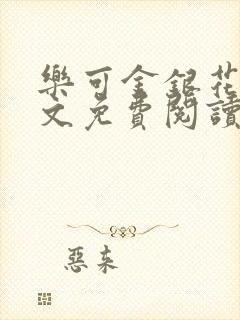 樂可金銀花
文免費閱讀
惡來